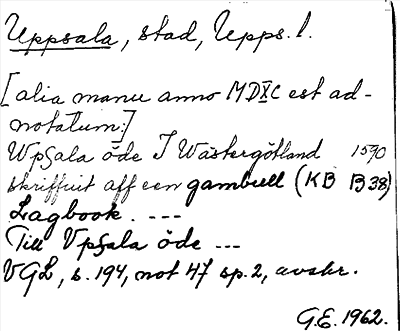 Uppsala, stad, Upps. l.
[alia manu anno MDXC est ad-
notatum:]
Wpsala öde I Wästergötland 1590
skriffuit aff een gambell (KB B38)
Lagbook. ---
Till Vpsala öde ---
VGL, s. 194, not 47 sp. 2, avskr.
G.E. 1962.